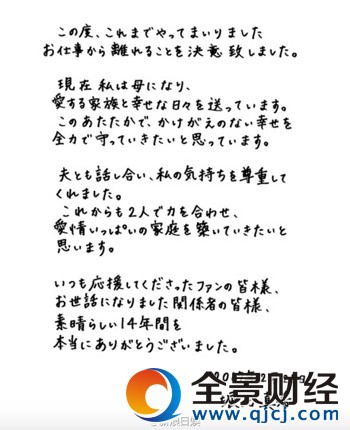 この度、これまでやってまいりました
お仕事から離れることを決意致しました。
現在私は母になり、
愛する家族と幸せな日々を送っています。
このあたたかで、かけがえのない幸せを
全力で守っていきたいと思っています。
夫とも話し合い、私の気持ちを尊重して
くれました。
これからも2人で力を合わせ、
愛情いっぱいの家庭を築いていきたいと
思います。
いつも応援してくださったファンの皆様、
お世話になりました関係者の皆様、
素晴らしい14年間を
本当にありがとうございました。
全景财经
www.qjcj.com
新浪日娱